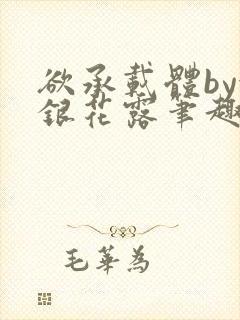 欲承載體by
銀花露筆趣
毛華為